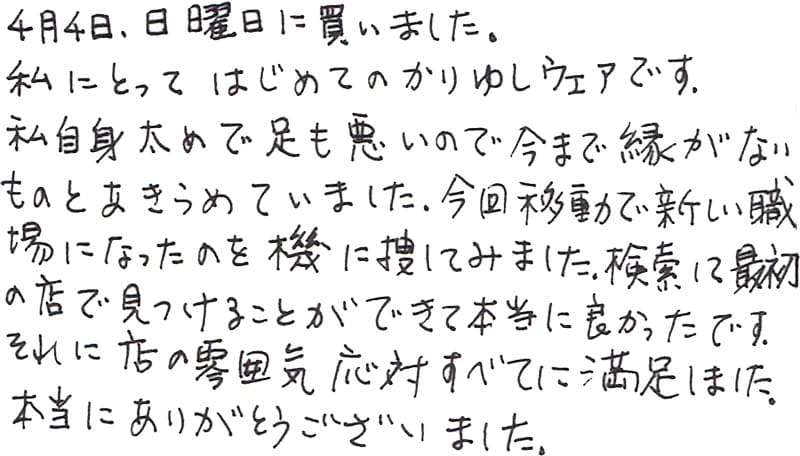 4月4日、日曜日に買いました。
私にとって はじめてのかりゆしウェアです.
私自身太めで足も悪いので今まで縁がない
ものとあきらめていました.今回移動で新しい職
場になったのを機に捜してみました.検索して最初
の店で見つけることができて本当に良かったです.
それに店の雰囲気応対すべてに満足しました。
本当にありがとうございました.